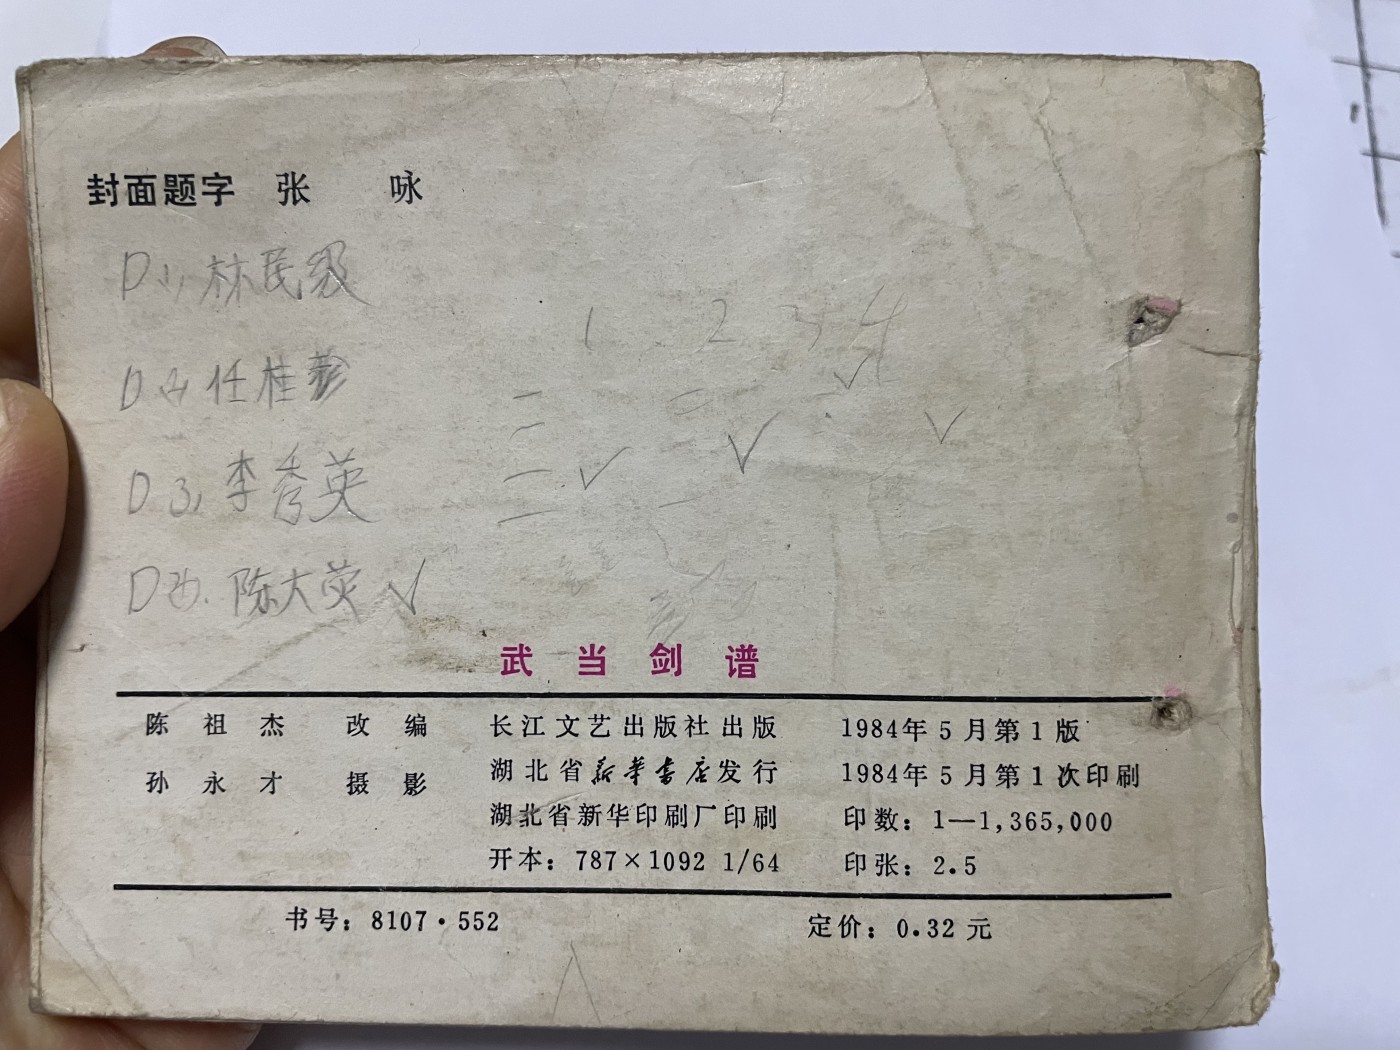 封面题字 张 咏
林民级
1 2 3 4
任桂
李秀英
陈大荧
武当剑谱
陈祖杰 改编
孙永才 摄影
长江文艺出版社出版
湖北省新华书店发行
湖北省新华印刷厂印刷
开本：787×1092 1/64
1984年5月第1版
1984年5月第1次印刷
印数：1—1,365,000
印张：2.5
书号：8107·552
定价：0.32元